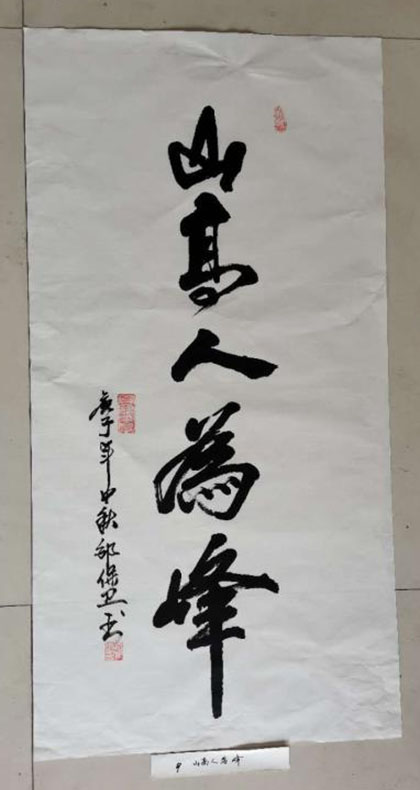 山高人為峰
庚子年中秋邹保卫书
9 山高人為峰